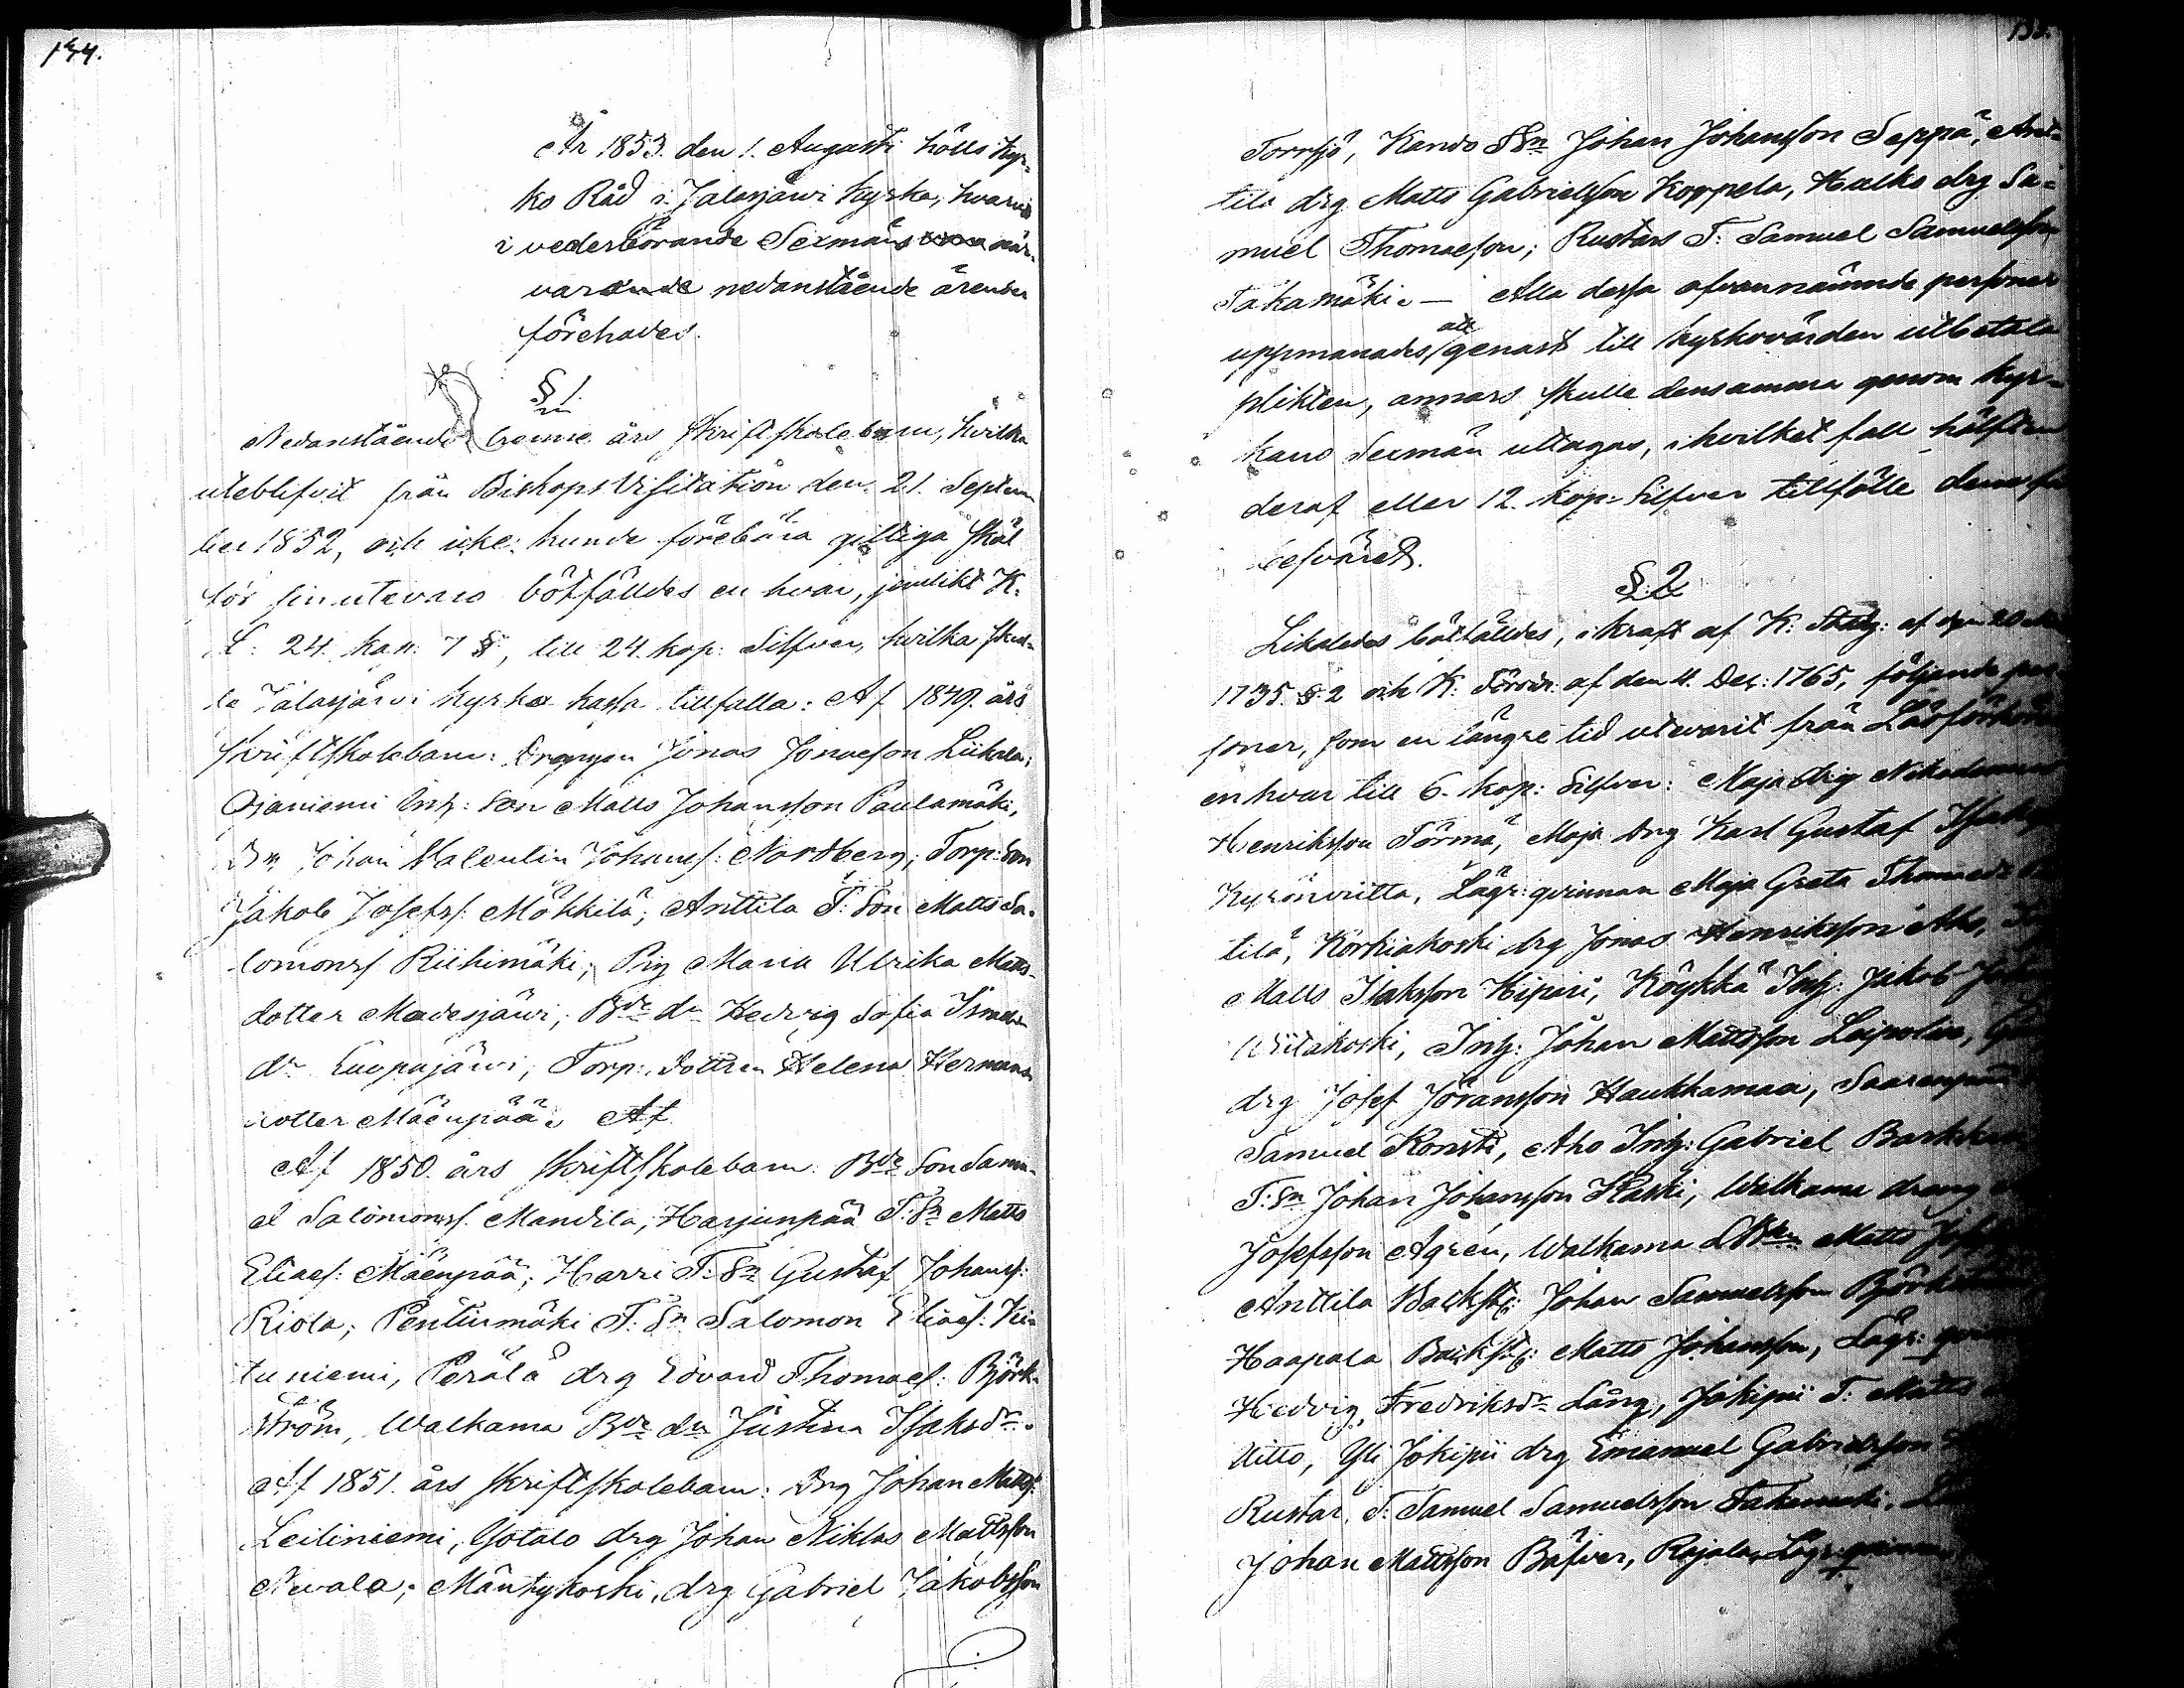 134.
År 1853. den 1. Augusti hölls Kyr-
ko Råd i Jalasjärwi kyrka, hvarvid
i vederbörande Sexmäns när-
varande nedanstående ärender
förehades.
§ 1.
Nedanstående trenne års Skriftskolebarn, hvilka
uteblifvit från Biskops Visitation den 21. Septem
ber 1852, och icke kunde förebära giltiga skäl
för sin utevaro bötfälldes en hvar, jemlikt K.
L. 24. kap. 7 §, till 24. kop: Silfver, hvilka skul-
le Jalasjärvi kyrko kassa tillfalla: Af 1849. års
skriftskolebarn: Drängen Jonas Jonaeson Liikala,
Ojaniemi Inh: Son Matts Johansson Paulamäki,
Johan Valentin Johanss: Nordberg, Torp: Son
Jakob Josefss: Mökkilä, Anttila T: Son Matts Sa-
lomonss Riihimäki; Pig Maria Ulrika Matts-
dotter Madesjärvi, Bde dr Hedvig Sofia Ismaels
dr Luopajärvi, Torp: dottren Helena Hermans
dotter Mäenpää. Af
Af 1850. års skriftskolebarn: Bde Son Samu-
el Salomonss. Mandila, Harjunpää T: Sn Matts
Eliaes: Mäenpää; Harri T: Sn Gustaf Johanss:
Riola; Pentinmäki T: Sn Salomon Eliaes: Ki-
tuniemi, Perälä drg Edvard Thomaes: Björk-
ström, Walkama Bde dr Justina Isaksdr.
Af 1851. års skriftskolebarn: Drg Johan Mattss:
Leiliniemi, Gotalo drg Johan Niklas Mattsson
Nevala; Mäntykoski drg Gabriel Jakobsson
135.
Torrsjö, Kando Sn Johan Johansson Seppä, Ant-
tila drg Matts Gabrielsson Koppela, Hulko drg Sa-
muel Thomaeson; Rustars T: Samuel Samuelsson
Takamäki. — Alla dessa ofvannämnde personer
uppmanades att genast till kyrkovärden utbetala
plikten, annars skulle densamma genom kyr-
kans Sexmän uttagas, i hvilket fall hälften
deraf eller 12. kop: Silfver tillfölle denne för
besväret.
§. 2
Likaledes bötfälldes, i kraft af K: Stadg: af den 20
1735. §. 2 och K: Förord: af den 11. Dec: 1765, följande per
soner, som en längre tid utevarit från Läsförhören
en hvar till 6. kop: Silfver: Maja drg Nikodemus
Henriksson Törmä, Maja drg Karl Gustaf Isaks
Kyrönviitta, Lägr: qvinnan Maja Greta Thomaedr
tilä, Korkiakoski drg Jonas Henriksson Aho,
Matts Isaksson Kipari, Köykkä Inh: Jakob
Wiitakoski, Inh: Johan Mattsson Leipola,
drg Josef Jöransson Haukkamaa, Saarenpää
Samuel Konsti, Aho Inh: Gabriel
T: Sn Johan Johansson Kaski, Walkama dräng
Josefsson Ågrén, Walkama Matts
Anttila Backst: Johan Samuelsson
Haapala Backst: Matts Johansson, Lägr: qvin
Hedvig Fredriksdr Lång, Jokipii T: Matts
Uitto, Yli Jokipii drg Emanuel Gabrielsson
Rustar T: Samuel Samuelsson Takamäki.
Johan Mattsson Bäfver, Rajala Lägr: qvinn